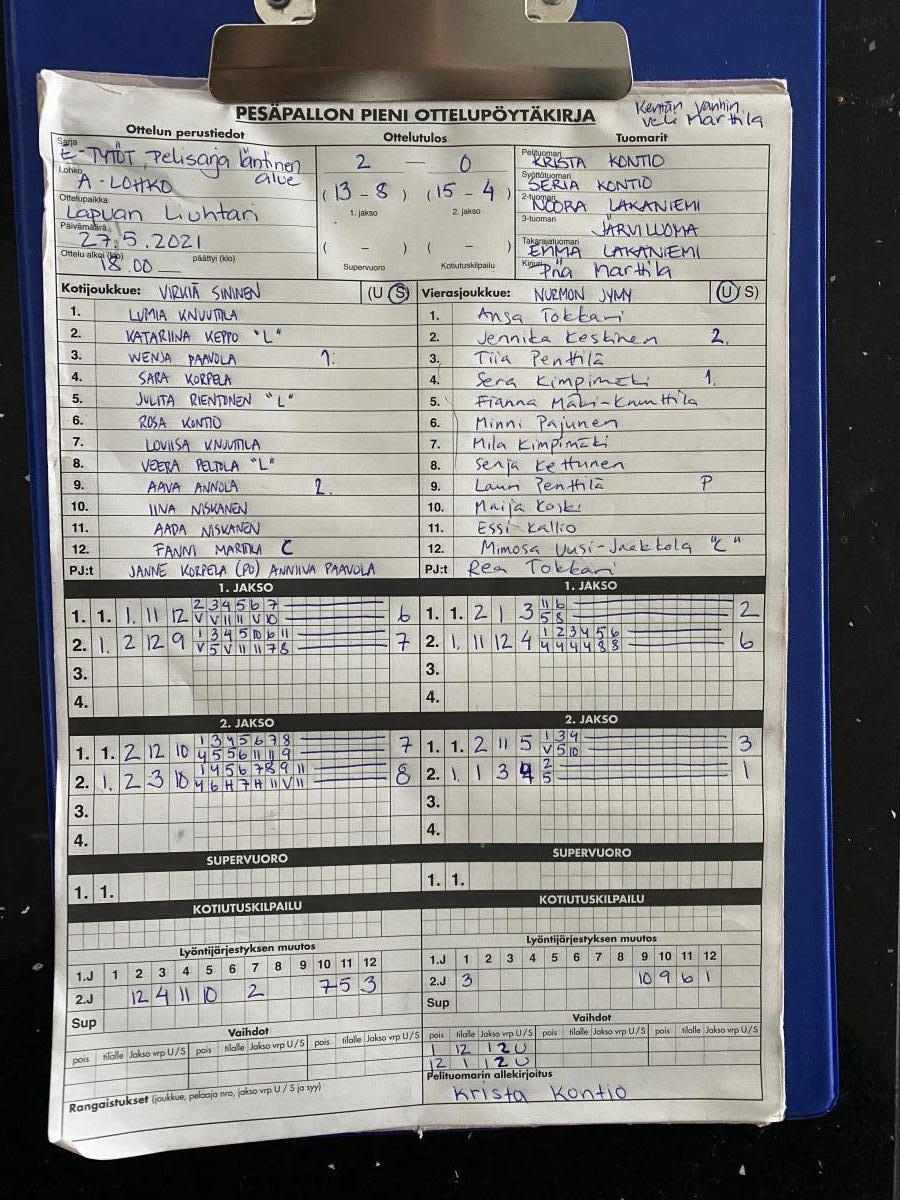 PESÄPALLON PIENI OTTELUPÖYTÄKIRJA
Kentän Vanhin
Veli Marttila
Ottelun perustiedot
Ottelutulos
Tuomarit
Sarja
E-TYTÖT, Pelisarja läntinen alue
Lohko
A-LOHKO
Ottelupaikka
Lapuan Liuhtari
Päivämäärä
27.5.2021
Ottelu alkoi (klo) 18.00 päättyi (klo)
2 — 0
(13 - 8) (15 - 4)
1. jakso 2. jakso
( - ) ( - )
Supervuoro Kotiutuskilpailu
Pelituomari KRISTA KONTIO
Syöttötuomari SERJA KONTIO
2-tuomari NOORA LAKANIEMI
3-tuomari JÄRVILUOMA
Takarajatuomari EMMA LAKANIEMI
Kirjuri Piia Marttila
Kotijoukkue: VIRKIÄ SININEN (U S)
1. LUMIA KNUUTILA
2. KATARIINA KEPPO "L"
3. WENJA PAAVOLA 1.
4. SARA KORPELA
5. JULITA RIENTONEN "L"
6. ROSA KONTIO
7. LOVIISA KNUUTILA
8. VEERA PELTOLA "L"
9. AAVA ANNOLA 2.
10. IINA NISKANEN
11. AADA NISKANEN
12. FANNI MARTTILA C
PJ:t JANNE KORPELA (PJ) ANNIINA PAAVOLA
Vierasjoukkue: NURMON JYMY (U S)
1. Ansa Tokkari
2. Jennika Keskinen 2.
3. Tiia Penttilä
4. Sera Kimpimäki 1.
5. Fianna Mäki-Knuuttila
6. Minni Pajunen
7. Mila Kimpimäki
8. Senja Kettunen
9. Lauri Penttilä P
10. Maija Koski
11. Essi Kallio
12. Mimosa Uusi-Jaakkola "L"
PJ:t Rea Tokkari
1. JAKSO
1. 1. 1 11 12 2 3 4 5 6 7 6
V V 11 11 V 10
2. 1. 2 12 9 1 3 4 5 10 6 11 7
V 5 V 11 11 7 8
3.
4.
1. JAKSO
1. 1. 2 1 3 11 6 2
5 8
2. 1. 11 12 4 1 2 3 4 5 6 6
4 4 4 4 8 8
3.
4.
2. JAKSO
1. 1. 2 12 10 1 3 4 5 6 7 8 7
4 5 5 6 11 11 9
2. 1. 2 3 10 1 4 5 6 7 8 9 11 8
4 6 H 7 H 11 V 11
3.
4.
2. JAKSO
1. 1. 2 11 5 1 3 4 3
V 5 10
2. 1. 1 3 4 2 1
5
3.
4.
SUPERVUORO
1. 1.
SUPERVUORO
1. 1.
KOTIUTUSKILPAILU
KOTIUTUSKILPAILU
Lyöntijärjestyksen muutos
1.J 1 2 3 4 5 6 7 8 9 10 11 12
2.J 12 4 11 10 2 7 5 3
Sup
Lyöntijärjestyksen muutos
1.J 1 2 3 4 5 6 7 8 9 10 11 12
2.J 3 10 9 6 1
Sup
Vaihdot
pois tilalle Jakso vrp U/S pois tilalle Jakso vrp U/S pois tilalle Jakso vrp U/S
Vaihdot
pois tilalle Jakso vrp U/S pois tilalle Jakso vrp U/S pois tilalle Jakso vrp U/S
1 12 1 2 U
12 1 1 2 U
Rangaistukset (joukkue, pelaaja nro, jakso vrp U / S ja syy)
Pelituomarin allekirjoitus
Krista Kontio